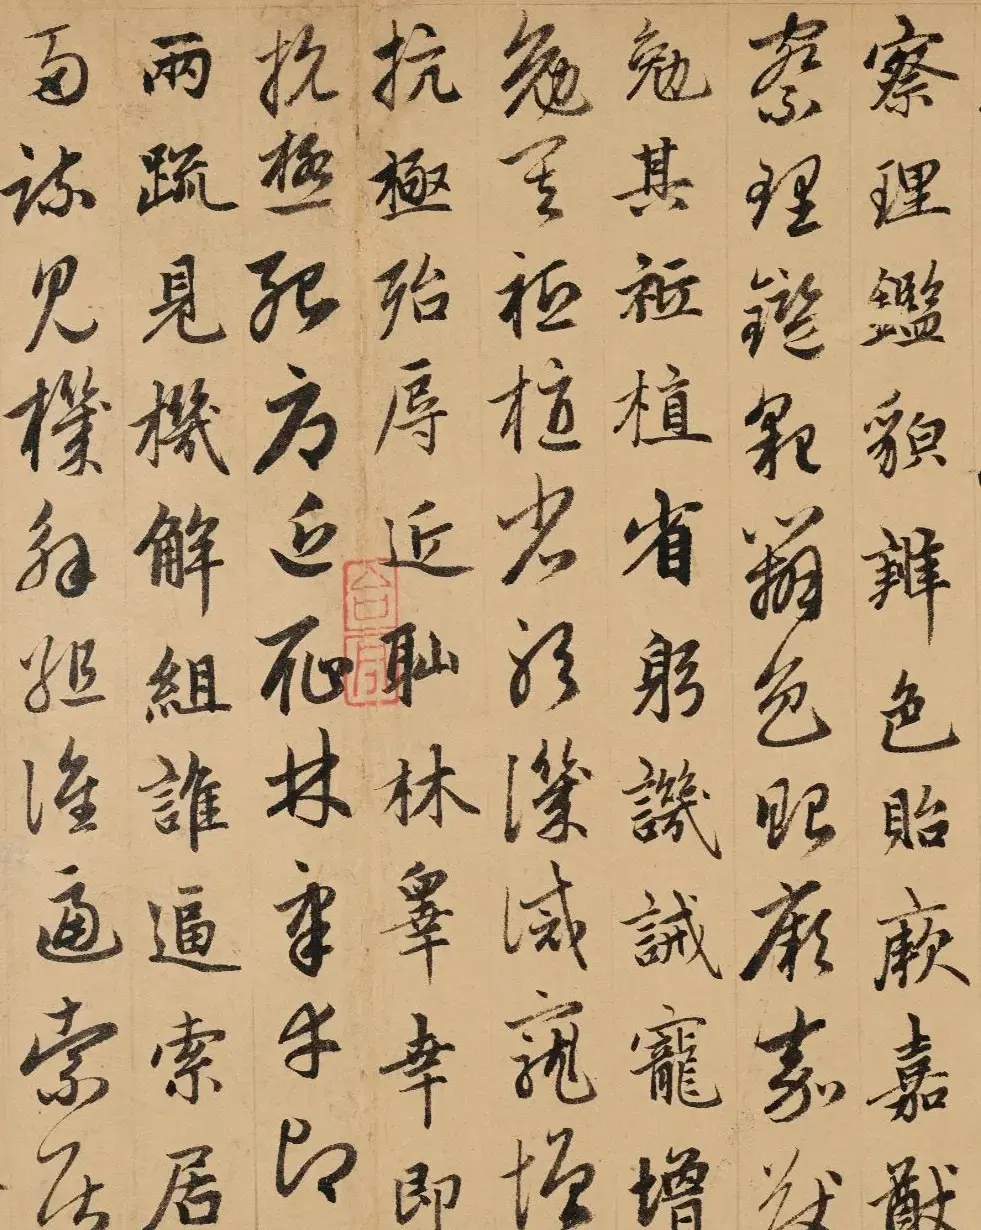 察理鑑貌辨色貽厥嘉猷
察理鑑貌辨色貽厥嘉猷
勉其祗植省躬譏誡寵增
勉其祗植省躬譏誡寵增
抗極殆辱近恥林睾幸即
抗極殆辱近恥林睾幸即
兩疏見機解組誰逼索居
兩疏見機解組誰逼索居